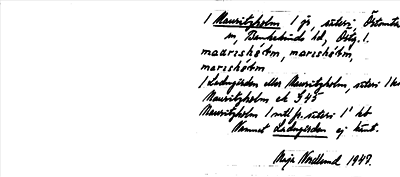 1 Mauritzholm 1 gs, säteri, Östomta
sn, Bankekinds hd, Östg. l.
maorishåłm, marishåłm,
marishåłm
1 Ladugården eller Mauritzholm, säteri 1
Mauritzholm ek S 45
Mauritzholm 1 mtl fr. säteri 1' kb
Namnet Ladugården ej känt.
Maja Nordlund 1947.